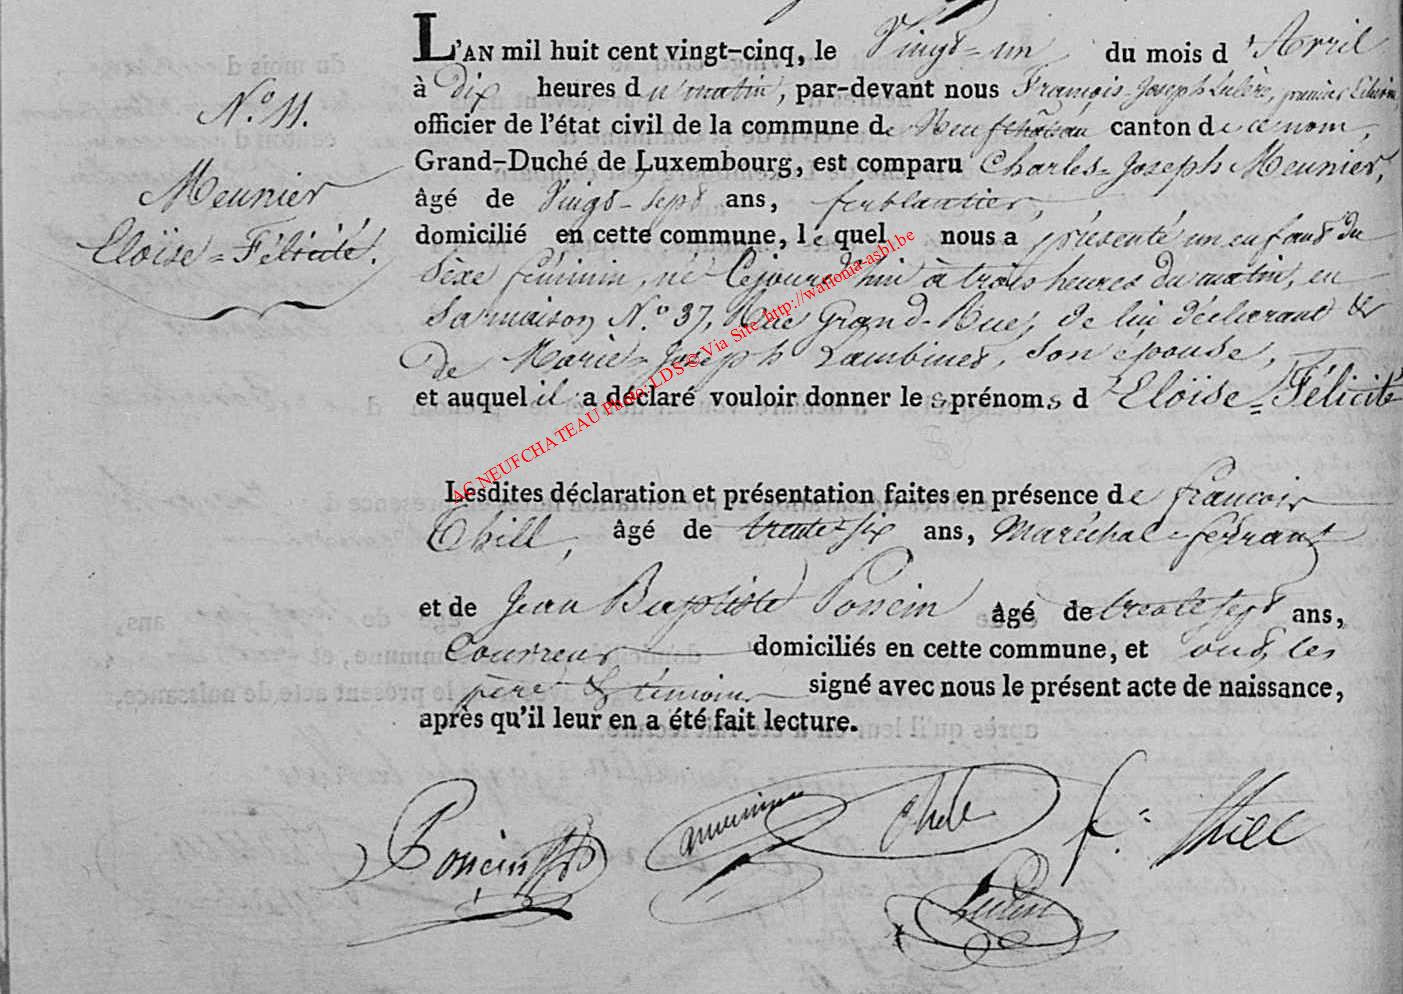 N.° 11.
Meunier
Eloïse=Félicité.
L'AN mil huit cent vingt-cinq, le Vingt-un du mois d'Avril
à Dix heures du matin, par-devant nous François-Joseph premier Echevin,
officier de l'état civil de la commune de Neufchâteau canton de ce nom,
Grand-Duché de Luxembourg, est comparu Charles-Joseph Meunier,
âgé de Vingt-Sept ans, ferblantier,
domicilié en cette commune, lequel nous a présenté un enfant du
Sexe féminin, né Cejourd'hui à trois heures du matin, en
Sa maison N.° 37, Rue Grand-Rue, de lui déclarant &
De Marie-Joseph Lambinet, Son épouse,
et auquel il a déclaré vouloir donner les prénoms d'Eloïse=Félicité
AC NEUFCHATEAU Photo: LDS © Via Site http://wallonia-asbl.be
Lesdites déclaration et présentation faites en présence de françois
Thill, âgé de trente-six ans, Maréchal-ferrant
et de Jean Baptiste Poncin âgé de trente sept ans,
Couvreur domiciliés en cette commune, et ont, les
père & témoins signé avec nous le présent acte de naissance,
après qu'il leur en a été fait lecture.
Poncin Meunier f: Thill